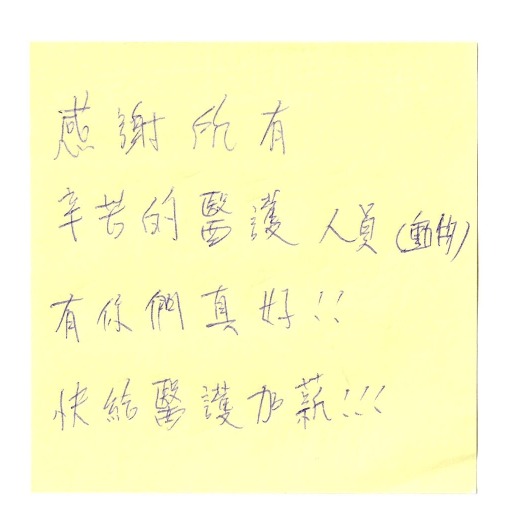 感謝所有
辛苦的醫護人員(動物)
有你們真好!!
快給醫護加薪!!!